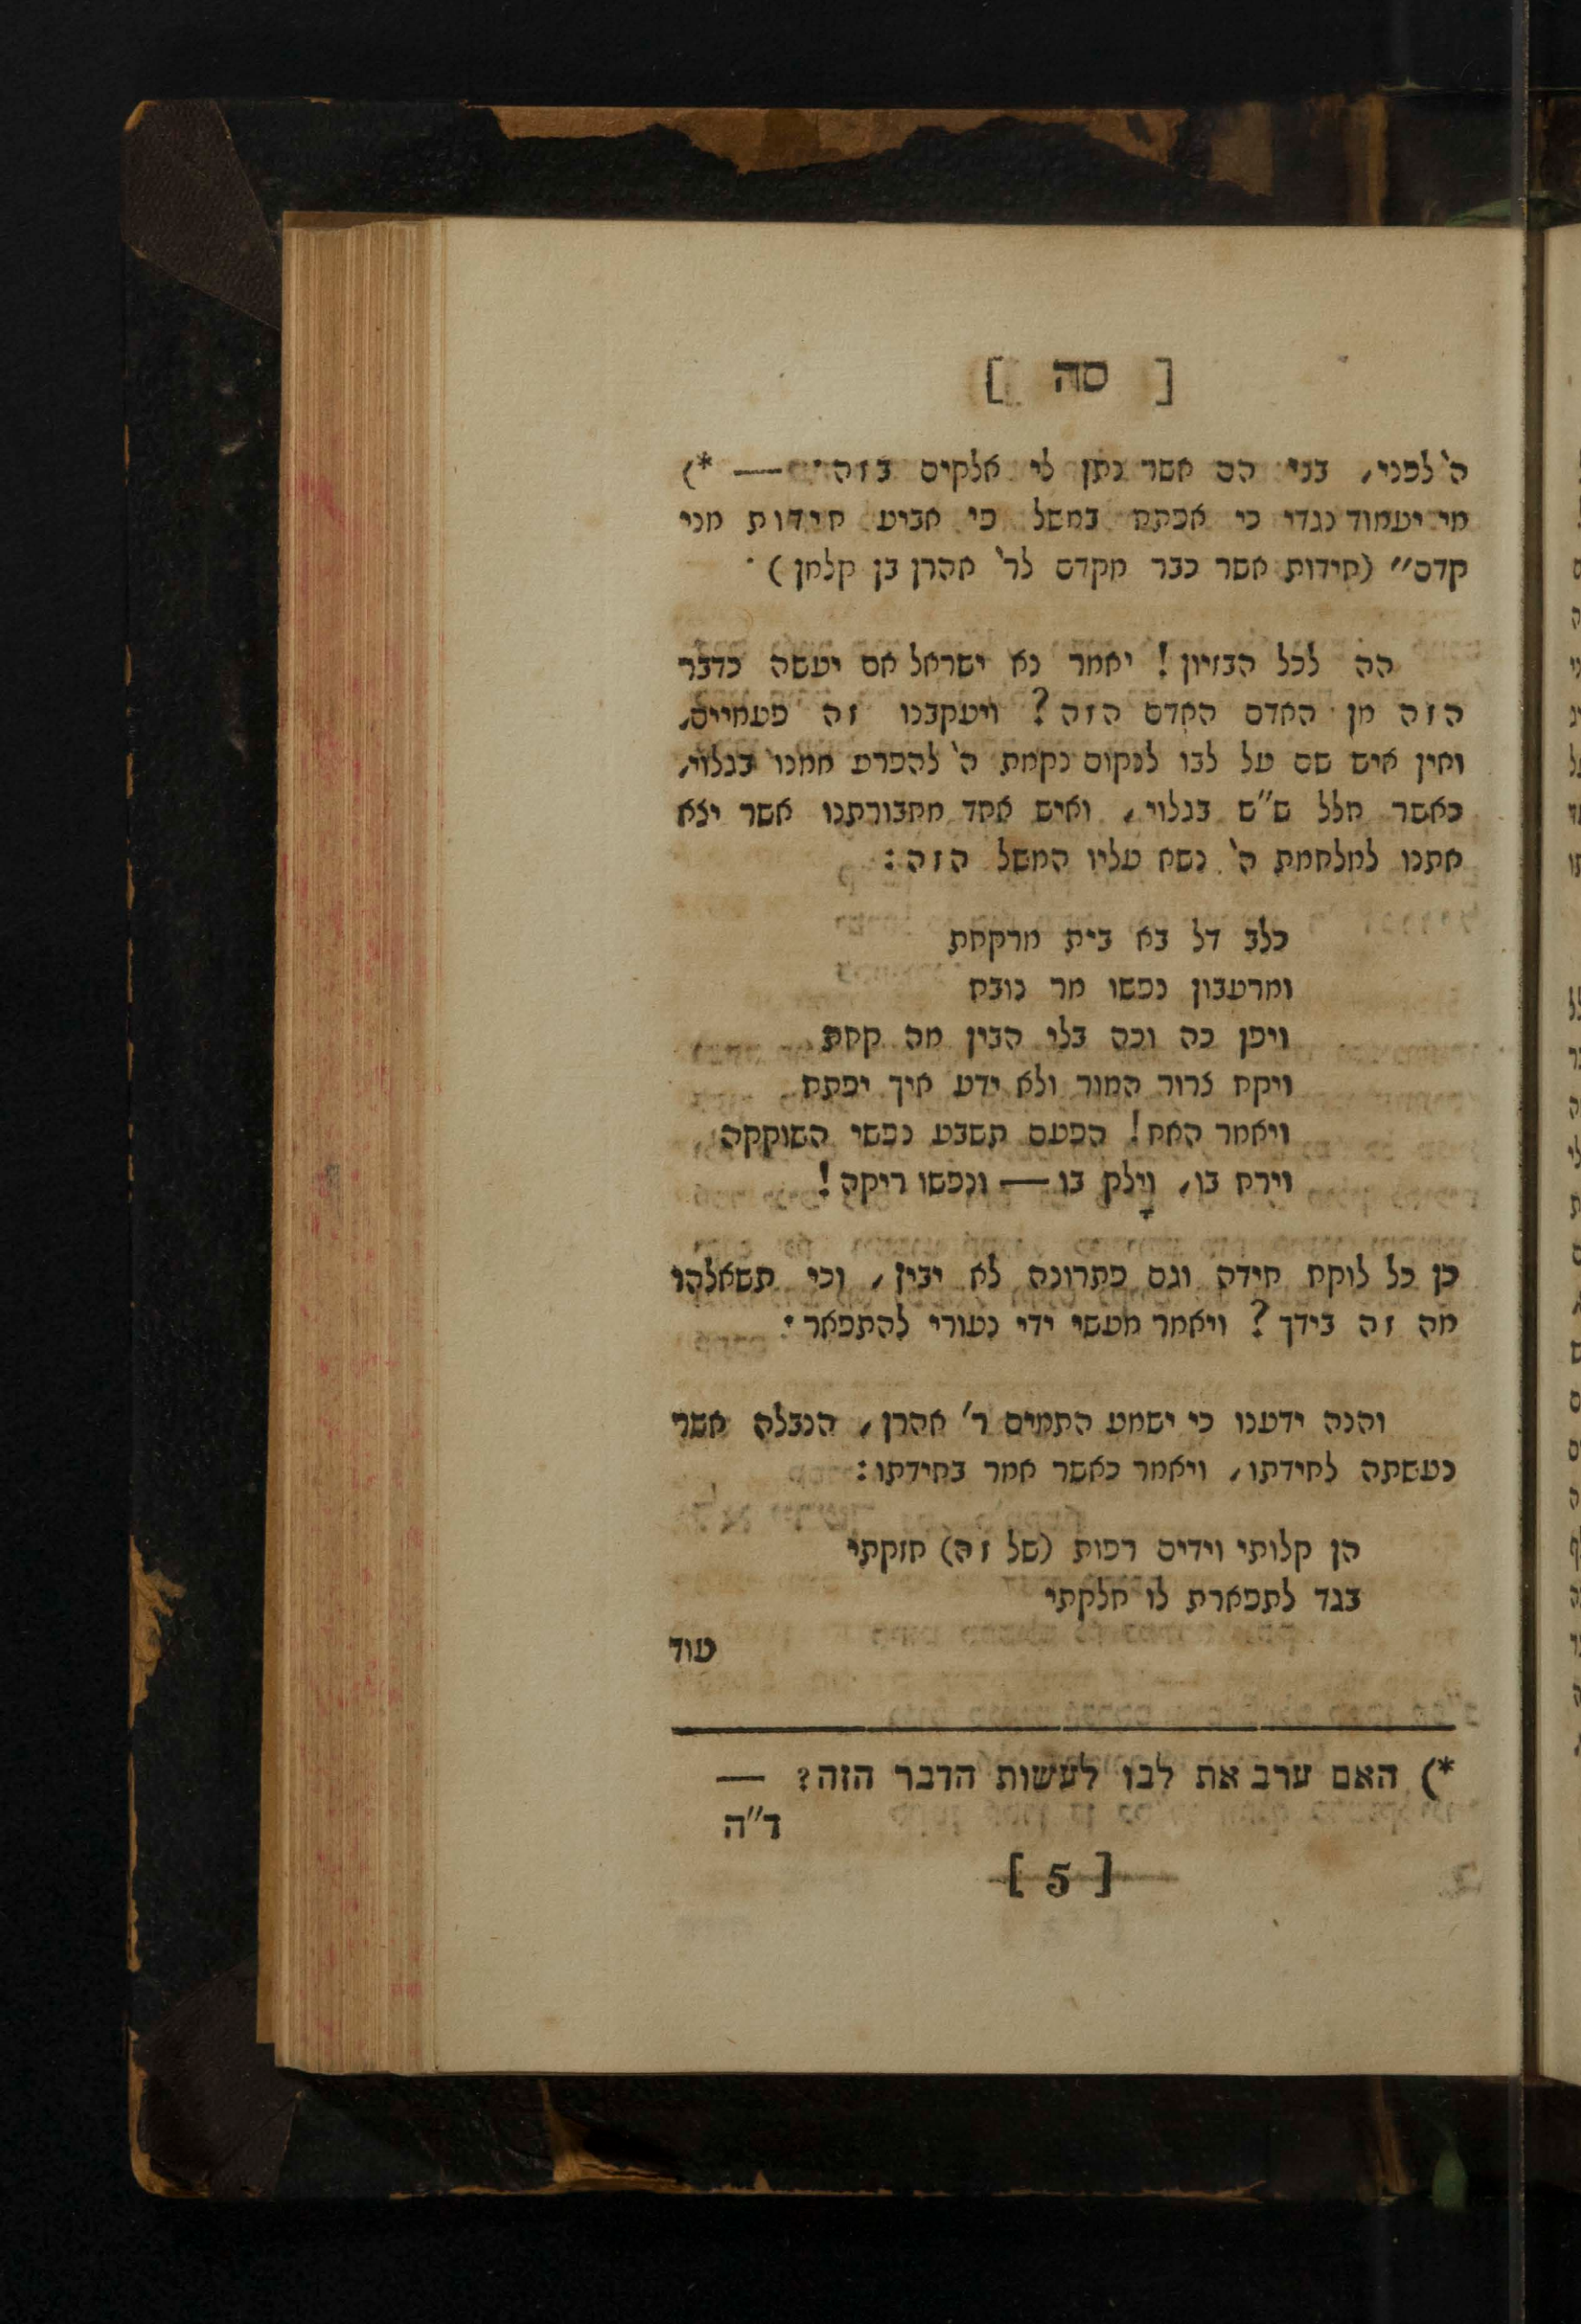 [ סה ]
ה' לפני, בני הם אשר נתן לי אלקים בזה׃ — *)
מי יעמוד נגדי כי אפתח במשל פי אביע חידות מני
קדם״ (חידות אשר כבר מקדם לר' אהרן בן קלמן)·
הה לכל הבזיון! יאמר נא ישראל אם יעשה כדבר
הזה מן האדם האדם הזה? ויעקבנו זה פעמיים,
ואין איש שם על לבו לנקום נקמת ה' להפרע ממנו בגלוי,
כאשר חלל ש״ש בגלוי, ואיש אחד מחבורתנו אשר יצא
אתנו למלחמת ה' נשא עליו המשל הזה:
כלב דל בא בית מרקחת
ומרעבון נפשו מר נובח
ויפן כה וכה בלי הבין מה קחת
ויקח צרור המור ולא ידע איך יפתח
ויאמר האח! הפעם תשבע נפשי השוקקה
וירח בו, וילק בו — ונפשו ריקה!
כן כל לוקח חידה וגם פתרונה לא יבין, וכי תשאלהו
מה זה בידך? ויאמר מעשי ידי נעורי להתפאר׃
והנה ידענו כי ישמע התמים ר' אהרן, הנבלה אשר
נעשתה לחידתו, ויאמר כאשר אמר בחידתו:
הן קלותי וידים רפות (של זה) חזקתי
בגד לתפארת לו חלקתי
עוד
*) האם ערב את לבו לעשות הדבר הזה? —
ד״ה
[ 5 ]